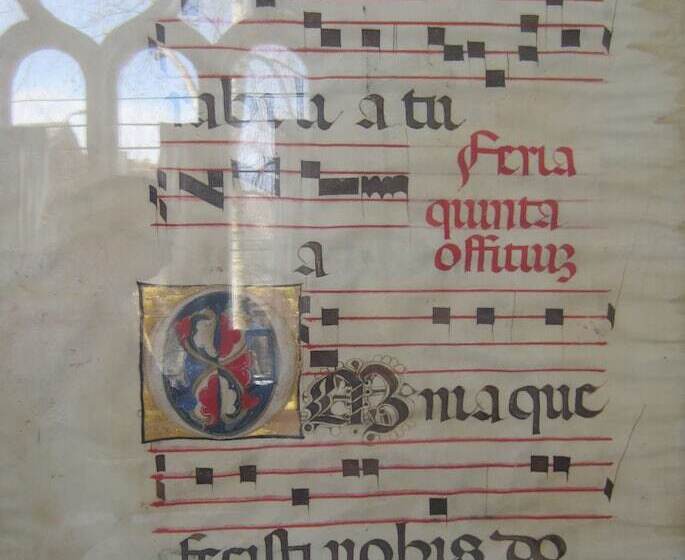 iaboli a tu
Feria
quinta
offitiuz
a
OMnia que
fecisti nobis do